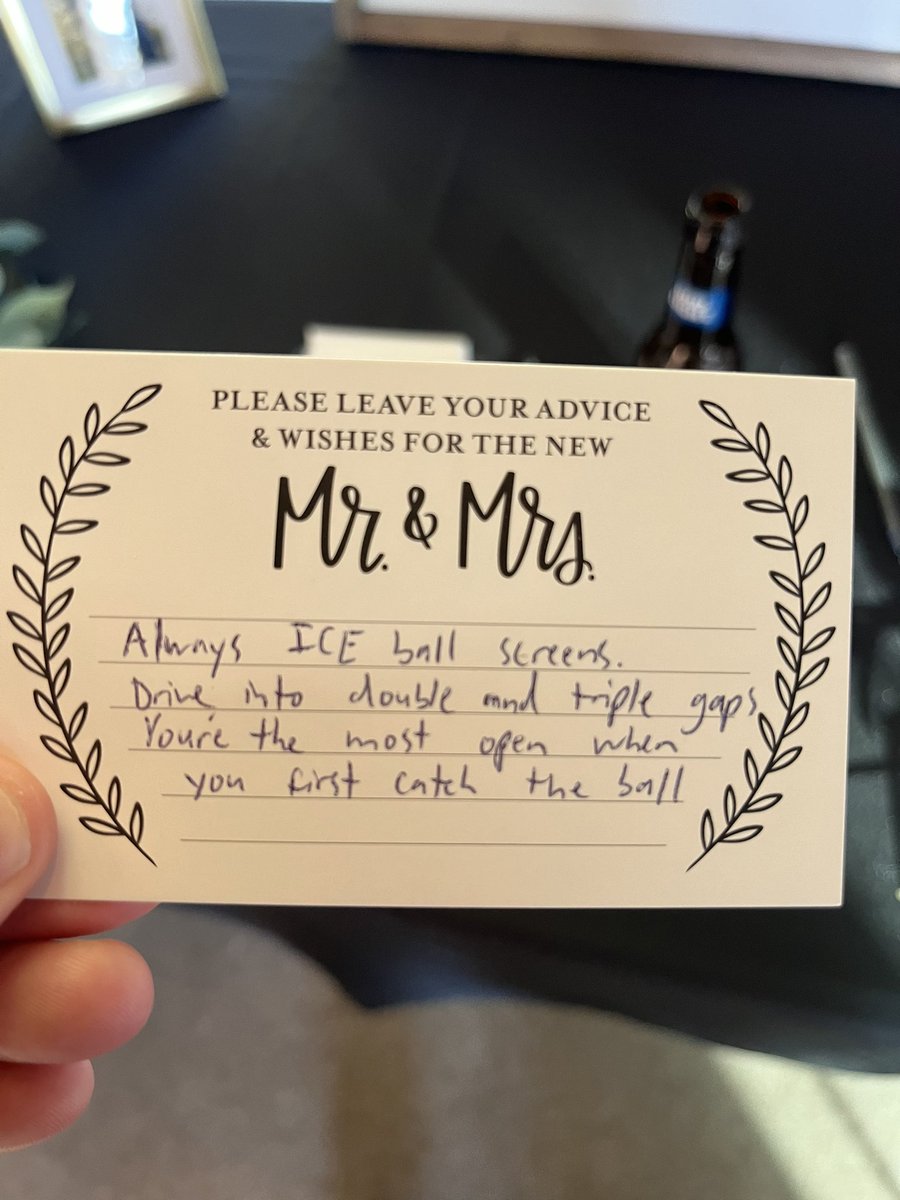 PLEASE LEAVE YOUR ADVICE
& WISHES FOR THE NEW
Mr. & Mrs.
Always ICE ball screens.
Drive into double and triple gaps.
You're the most open when
you first catch the ball